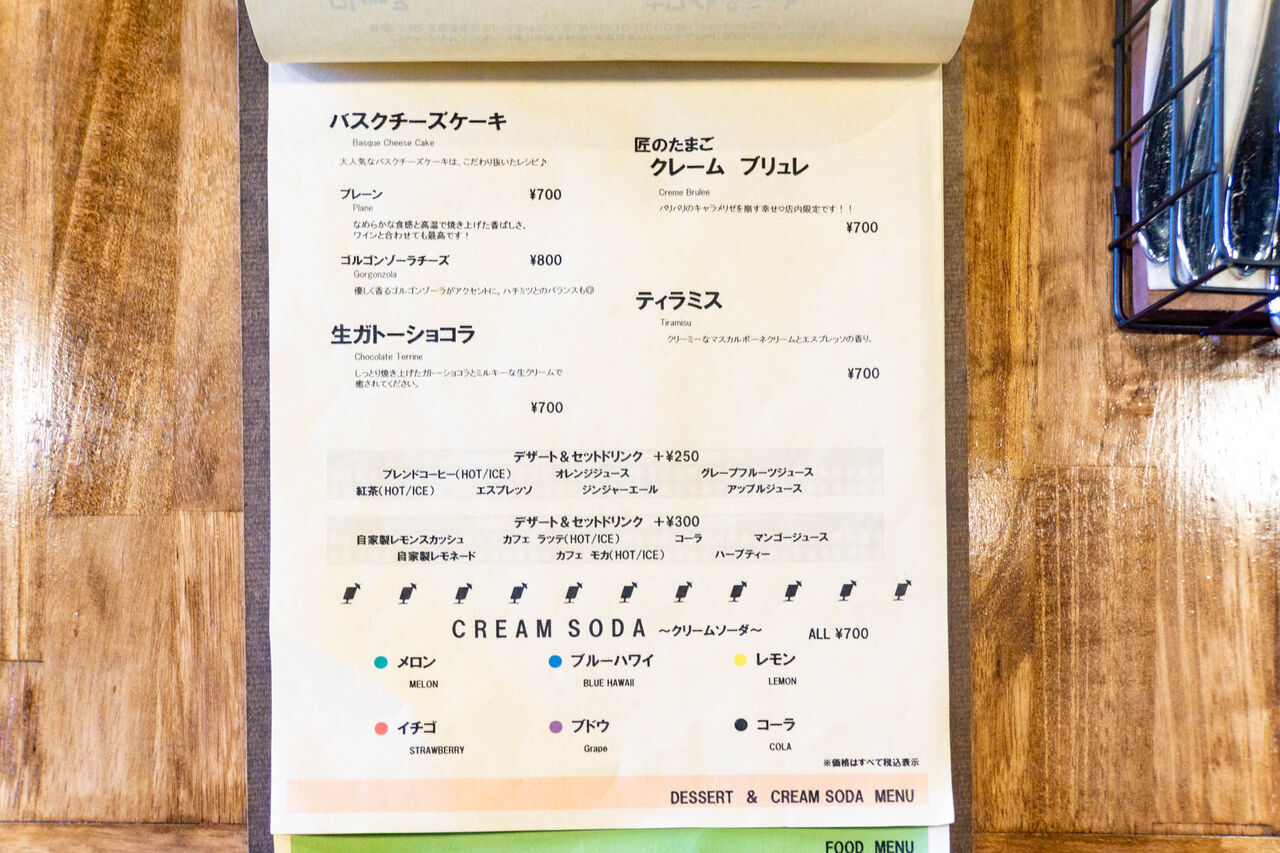 バスクチーズケーキ
Basque Cheese Cake
大人気なバスクチーズケーキは、こだわり抜いたレシピ♪
プレーン ¥700
Plane
なめらかな食感と高温で焼き上げた香ばしさ、
ワインと合わせても最高です！
ゴルゴンゾーラチーズ ¥800
Gorgonzola
優しく香るゴルゴンゾーラがアクセントに。ハチミツとのバランスも◎
生ガトーショコラ
Chocolate Terrine
しっとり焼き上げたガトーショコラとミルキーな生クリームで
癒されてください。
¥700
匠のたまご
クレーム ブリュレ
Creme Brulee
パリパリのキャラメリゼを崩す幸せ♡店内限定です！！
¥700
ティラミス
Tiramisu
クリーミーなマスカルポーネクリームとエスプレッソの香り。
¥700
デザート＆セットドリンク ＋¥250
ブレンドコーヒー(HOT/ICE) オレンジジュース グレープフルーツジュース
紅茶(HOT/ICE) エスプレッソ ジンジャーエール アップルジュース
デザート＆セットドリンク ＋¥300
自家製レモンスカッシュ カフェ ラッテ(HOT/ICE) コーラ マンゴージュース
自家製レモネード カフェ モカ(HOT/ICE) ハーブティー
CREAM SODA ～クリームソーダ～ ALL ¥700
メロン ブルーハワイ レモン
MELON BLUE HAWAII LEMON
イチゴ ブドウ コーラ
STRAWBERRY Grape COLA
※価格はすべて税込表示
DESSERT & CREAM SODA MENU
FOOD MENU